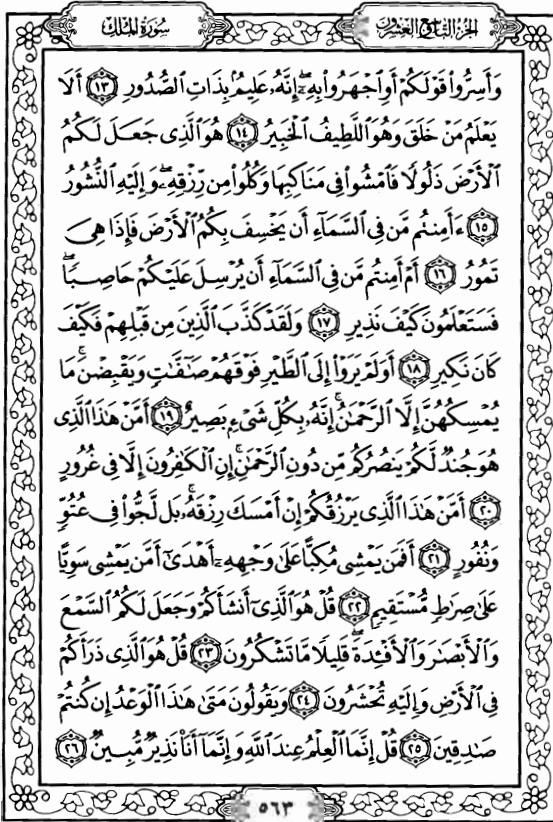 الجزء التاسع والعشرون
سورة الملك
وَأَسِرُّوا۟ قَوْلَكُمْ أَوِ ٱجْهَرُوا۟ بِهِۦٓ إِنَّهُۥ عَلِيمٌۢ بِذَاتِ ٱلصُّدُورِ ١٣ أَلَا
يَعْلَمُ مَنْ خَلَقَ وَهُوَ ٱللَّطِيفُ ٱلْخَبِيرُ ١٤ هُوَ ٱلَّذِى جَعَلَ لَكُمُ
ٱلْأَرْضَ ذَلُولًا فَٱمْشُوا۟ فِى مَنَاكِبِهَا وَكُلُوا۟ مِن رِّزْقِهِۦ وَإِلَيْهِ ٱلنُّشُورُ
١٥ ءَأَمِنتُم مَّن فِى ٱلسَّمَآءِ أَن يَخْسِفَ بِكُمُ ٱلْأَرْضَ فَإِذَا هِىَ
تَمُورُ ١٦ أَمْ أَمِنتُم مَّن فِى ٱلسَّمَآءِ أَن يُرْسِلَ عَلَيْكُمْ حَاصِبًا
فَسَتَعْلَمُونَ كَيْفَ نَذِيرِ ١٧ وَلَقَدْ كَذَّبَ ٱلَّذِينَ مِن قَبْلِهِمْ فَكَيْفَ
كَانَ نَكِيرِ ١٨ أَوَلَمْ يَرَوْا۟ إِلَى ٱلطَّيْرِ فَوْقَهُمْ صَٰٓفَّٰتٍ وَيَقْبِضْنَ مَا
يُمْسِكُهُنَّ إِلَّا ٱلرَّحْمَٰنُ إِنَّهُۥ بِكُلِّ شَىْءٍۭ بَصِيرٌ ١٩ أَمَّنْ هَٰذَا ٱلَّذِى
هُوَ جُندٌ لَّكُمْ يَنصُرُكُم مِّن دُونِ ٱلرَّحْمَٰنِ إِنِ ٱلْكَٰفِرُونَ إِلَّا فِى غُرُورٍ
٢٠ أَمَّنْ هَٰذَا ٱلَّذِى يَرْزُقُكُمْ إِنْ أَمْسَكَ رِزْقَهُۥ بَل لَّجُّوا۟ فِى عُتُوٍّ
وَنُفُورٍ ٢١ أَفَمَن يَمْشِى مُكِبًّا عَلَىٰ وَجْهِهِۦٓ أَهْدَىٰٓ أَمَّن يَمْشِى سَوِيًّا
عَلَىٰ صِرَٰطٍ مُّسْتَقِيمٍ ٢٢ قُلْ هُوَ ٱلَّذِىٓ أَنشَأَكُمْ وَجَعَلَ لَكُمُ ٱلسَّمْعَ
وَٱلْأَبْصَٰرَ وَٱلْأَفْـِٔدَةَ قَلِيلًا مَّا تَشْكُرُونَ ٢٣ قُلْ هُوَ ٱلَّذِى ذَرَأَكُمْ
فِى ٱلْأَرْضِ وَإِلَيْهِ تُحْشَرُونَ ٢٤ وَيَقُولُونَ مَتَىٰ هَٰذَا ٱلْوَعْدُ إِن كُنتُمْ
صَٰدِقِينَ ٢٥ قُلْ إِنَّمَا ٱلْعِلْمُ عِندَ ٱللَّهِ وَإِنَّمَآ أَنَا۠ نَذِيرٌ مُّبِينٌ ٢٦
٥٦٣